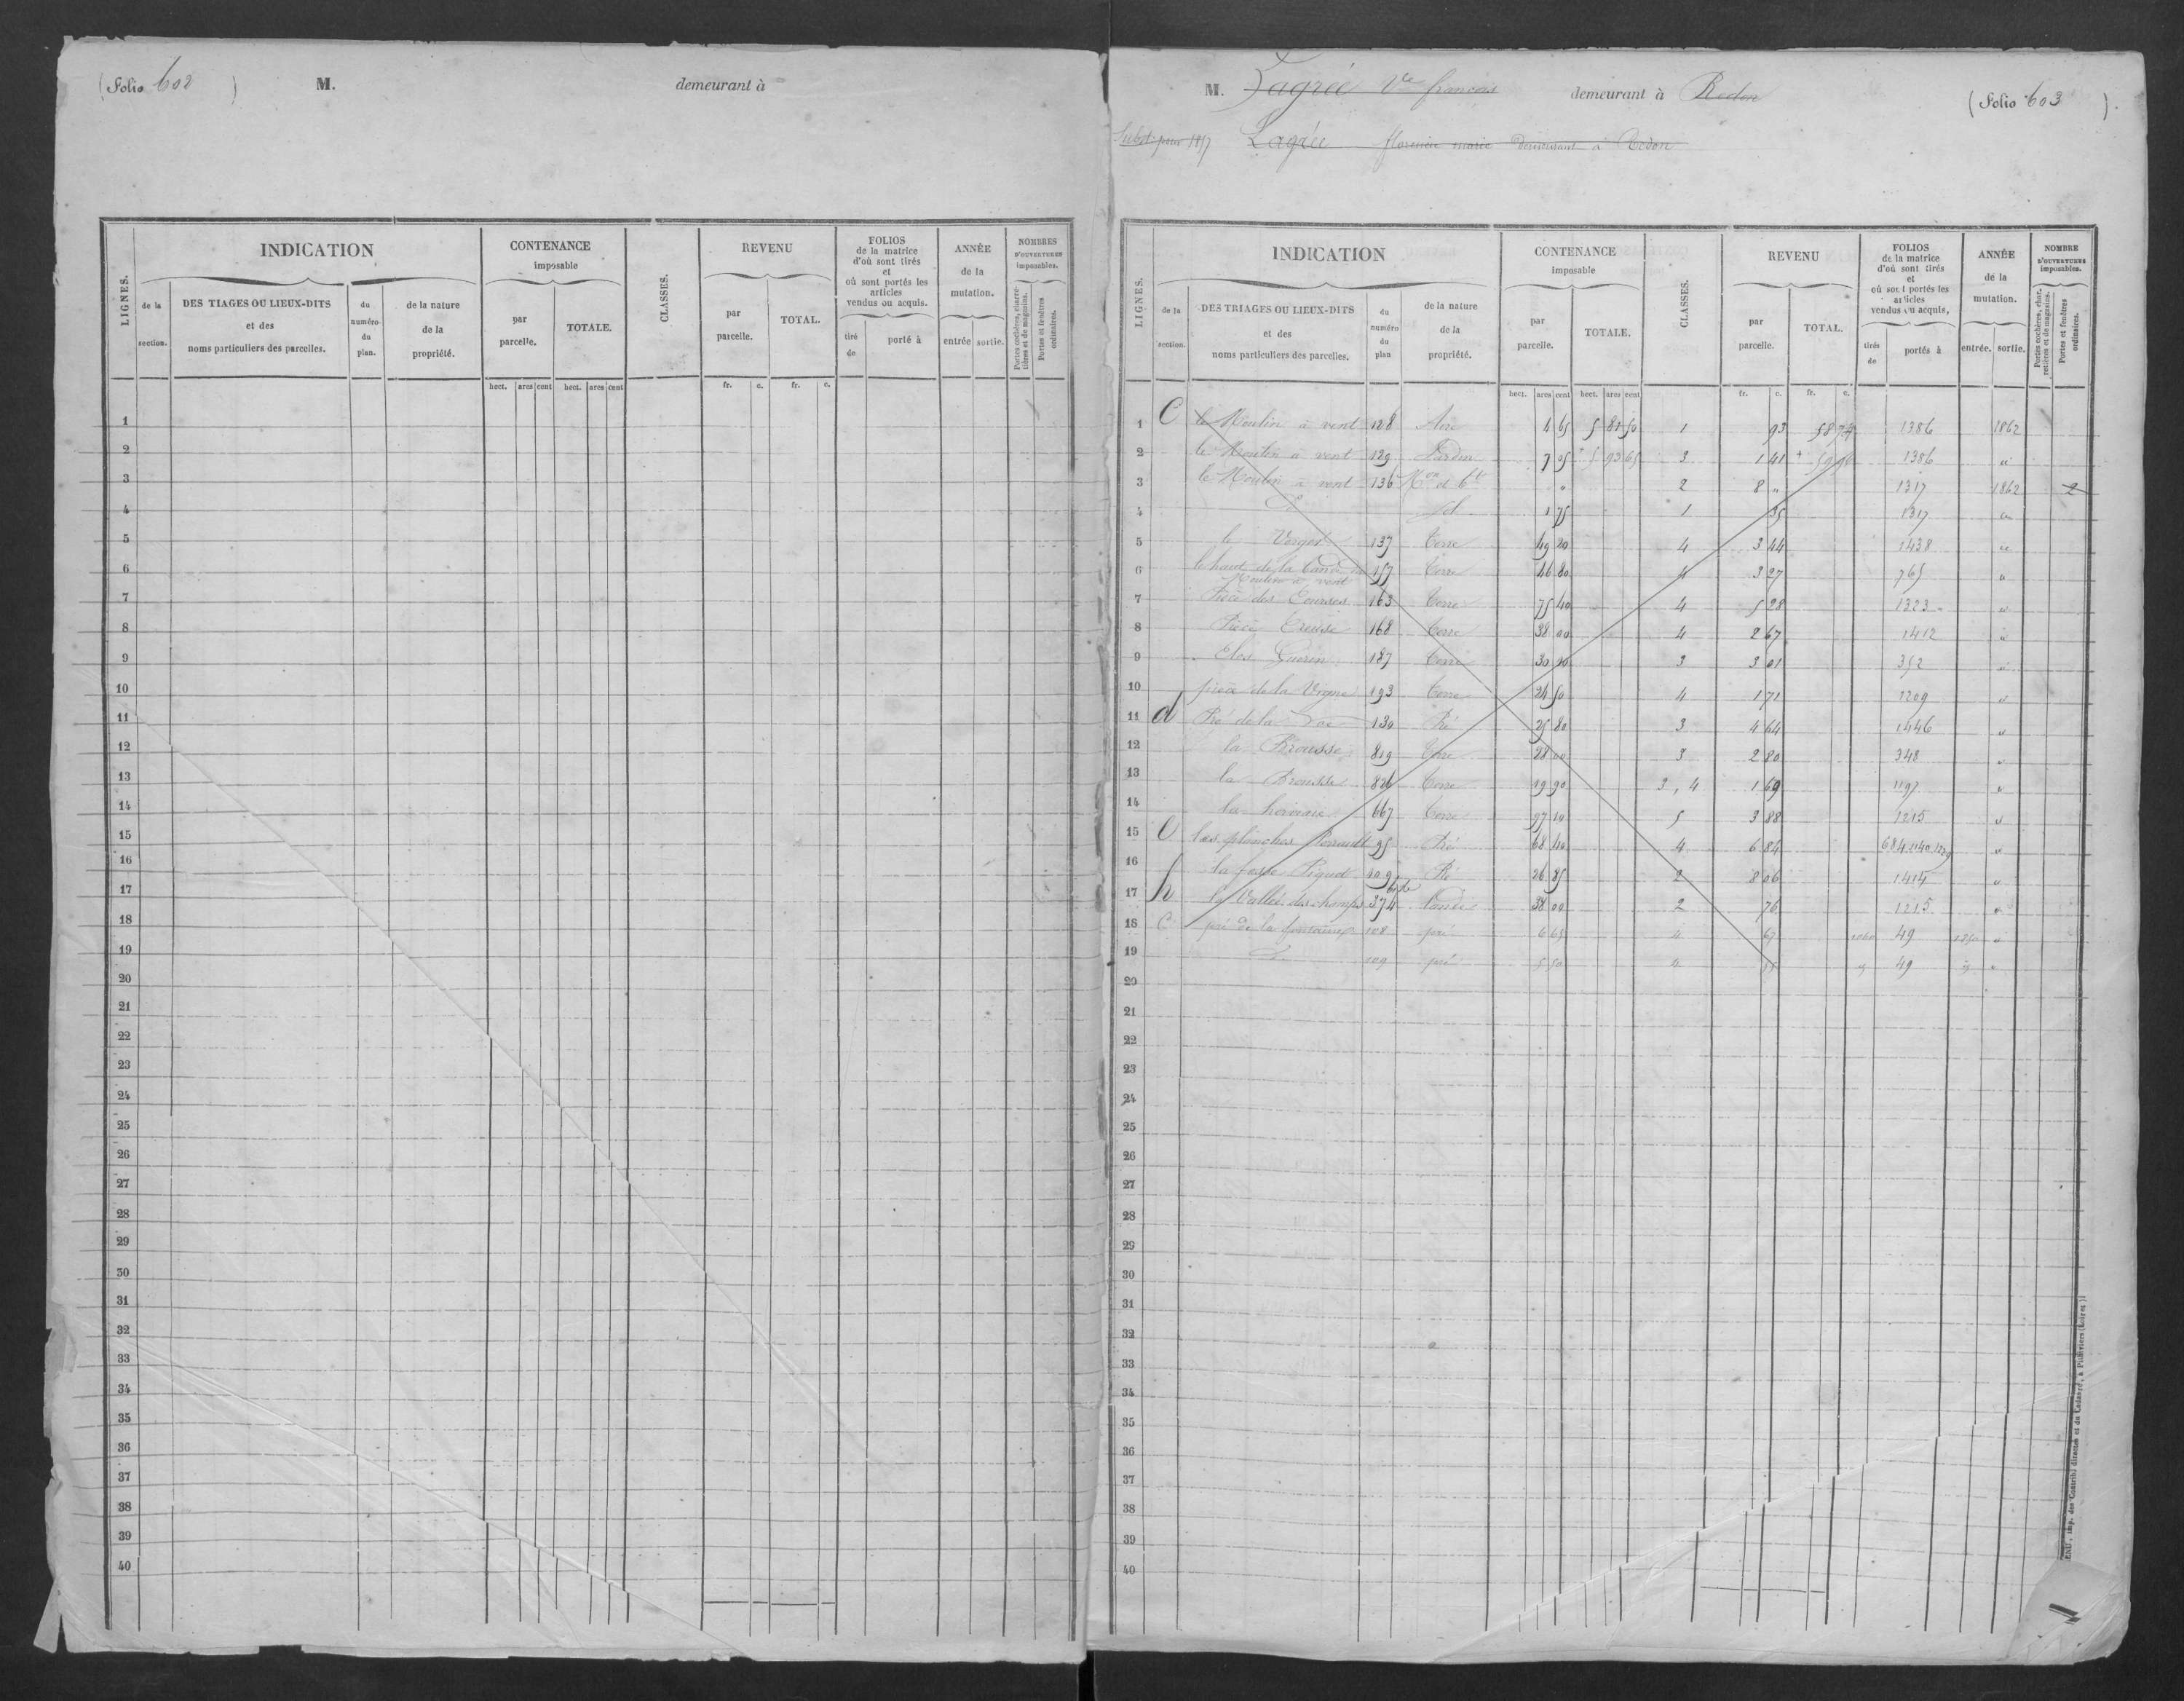 ( Folio 602 ) M. demeurant à
INDICATION
CONTENANCE
imposable
CLASSES.
REVENU
FOLIOS
de la matrice
d'où sont tirés
et
où sont portés les
articles
vendus ou acquis.
ANNÉE
de la
mutation.
NOMBRES
D'OUVERTURES
imposables.
LIGNES.
de la
section.
DES TIAGES OU LIEUX-DITS
et des
noms particuliers des parcelles.
du
numéro
du
plan.
de la nature
de la
propriété.
par
parcelle.
TOTALE.
par
parcelle.
TOTAL.
tiré
de
porté à
entrée
sortie.
Portes cochères, charre-
tières et de magasins.
Portes et fenêtres
ordinaires.
hect. ares cent hect. ares cent fr. c. fr. c.
1
2
3
4
5
6
7
8
9
10
11
12
13
14
15
16
17
18
19
20
21
22
23
24
25
26
27
28
29
30
31
32
33
34
35
36
37
38
39
40
M. Lagrée Vve françois demeurant à Redon ( Folio 603 ).
Subst. pour 1857 Lagrée florencie marie demeurant à Redon
INDICATION
CONTENANCE
imposable
CLASSES.
REVENU
FOLIOS
de la matrice
d'où sont tirés
et
où sont portés les
articles
vendus ou acquis,
ANNÉE
de la
mutation.
NOMBRE
D'OUVERTURES
imposables.
LIGNES.
de la
section.
DES TRIAGES OU LIEUX-DITS
et des
noms particuliers des parcelles.
du
numéro
du
plan
de la nature
de la
propriété.
par
parcelle.
TOTALE.
par
parcelle.
TOTAL.
tirés
de
portés à
entrée.
sortie.
Portes cochères, char.
retières et de magasins.
Portes et fenêtres
ordinaires.
hect. ares cent hect. ares cent fr. c. fr. c.
1 C le Moulin à vent 128 Aire 4 65 5 81 50 1 93 58 74 1386 1862
2 le Moulin à vent 129 Jardin 7 05 5 93 65 3 1 41 + 1386 "
3 le Moulin à vent 136 Mon et bt " 2 8 " 1317 1862 2
4 do id 1 75 1 35 1317 "
5 le Verger 137 Terre 49 20 4 3 44 1438 "
6 le haut de la Lande du Moulin à vent 157 Terre 46 80 4 3 27 765 "
7 Pièce des Courses 163 Terre 75 40 4 5 28 1323 "
8 Pièce Creuse 168 Terre 38 00 4 2 67 1412 "
9 Clos Guérin 187 Terre 30 20 3 3 01 352 "
10 pièce de la Vigne 193 Terre 24 50 4 1 71 1209 "
11 d Pré de la 130 Pré 25 80 3 4 64 1446 "
12 la Brousse 819 Terre 28 00 3 2 80 348 "
13 la Brousse 826 Terre 19 90 3, 4 1 69 1197 "
14 la 667 Terre 97 10 5 3 88 1215 "
15 e les planches 95 Pré 68 40 4 6 84 684 1140 1229 "
16 la fosse Piquet 109 Pré 26 85 2 8 06 1414 "
17 h la Vallée des champs 374 Lande 38 00 2 76 1215 "
18 C pré de la fontaine 108 pré 6 65 4 67 1060 49 1850 "
19 do 109 pré 5 50 4 55 id 49 id "
20
21
22
23
24
25
26
27
28
29
30
31
32
33
34
35
36
37
38
39
40